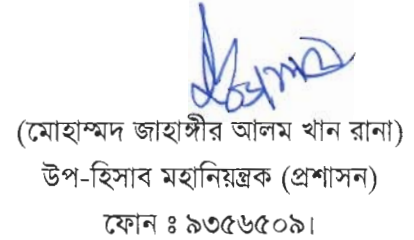 (মোহাম্মদ জাহাঙ্গীর আলম খান রানা)
উপ-হিসাব মহানিয়ন্ত্রক (প্রশাসন)
ফোন ঃ ৯৩৫৬৫০৯।